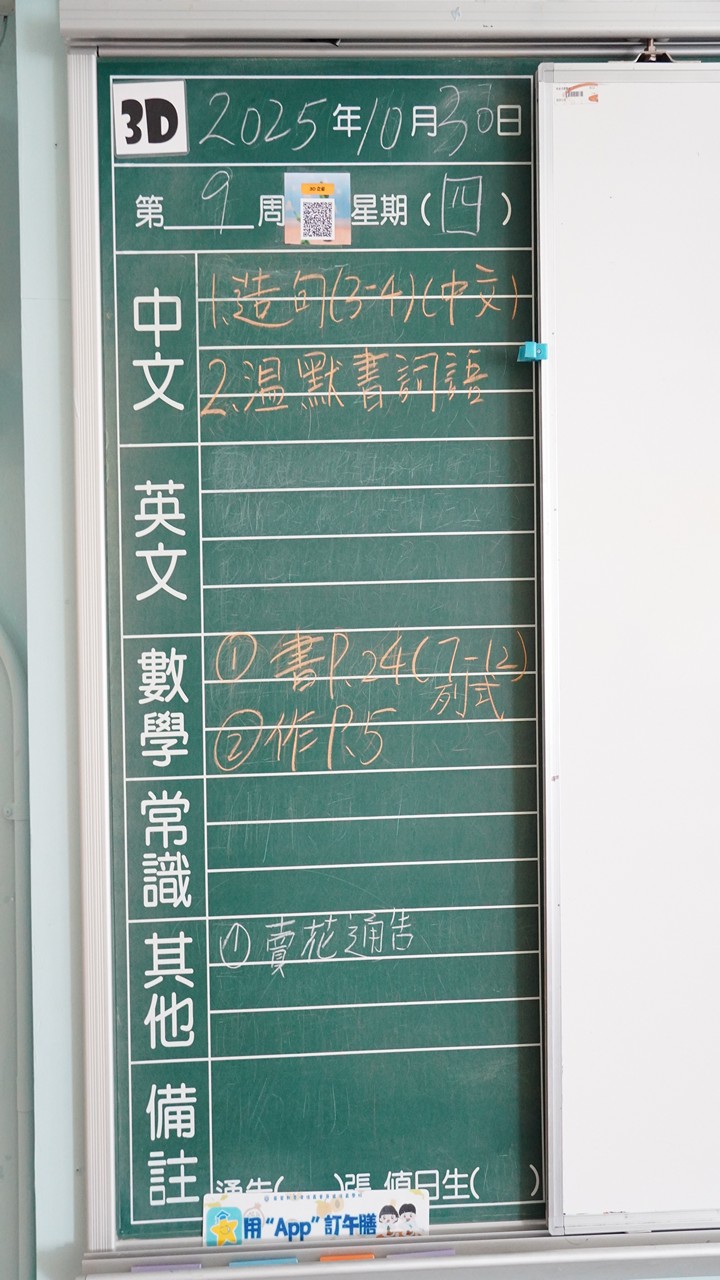 3D 2025年10月30日
第9周 星期(四)
中文
1.造句(3-4)(中文)
2.温默書詞語
英文
數學
① 書P.24(7-12)
列式
② 作P.5
常識
其他
① 賣花通告
備註
通告( )張 值日生( )
用“App”訂午膳